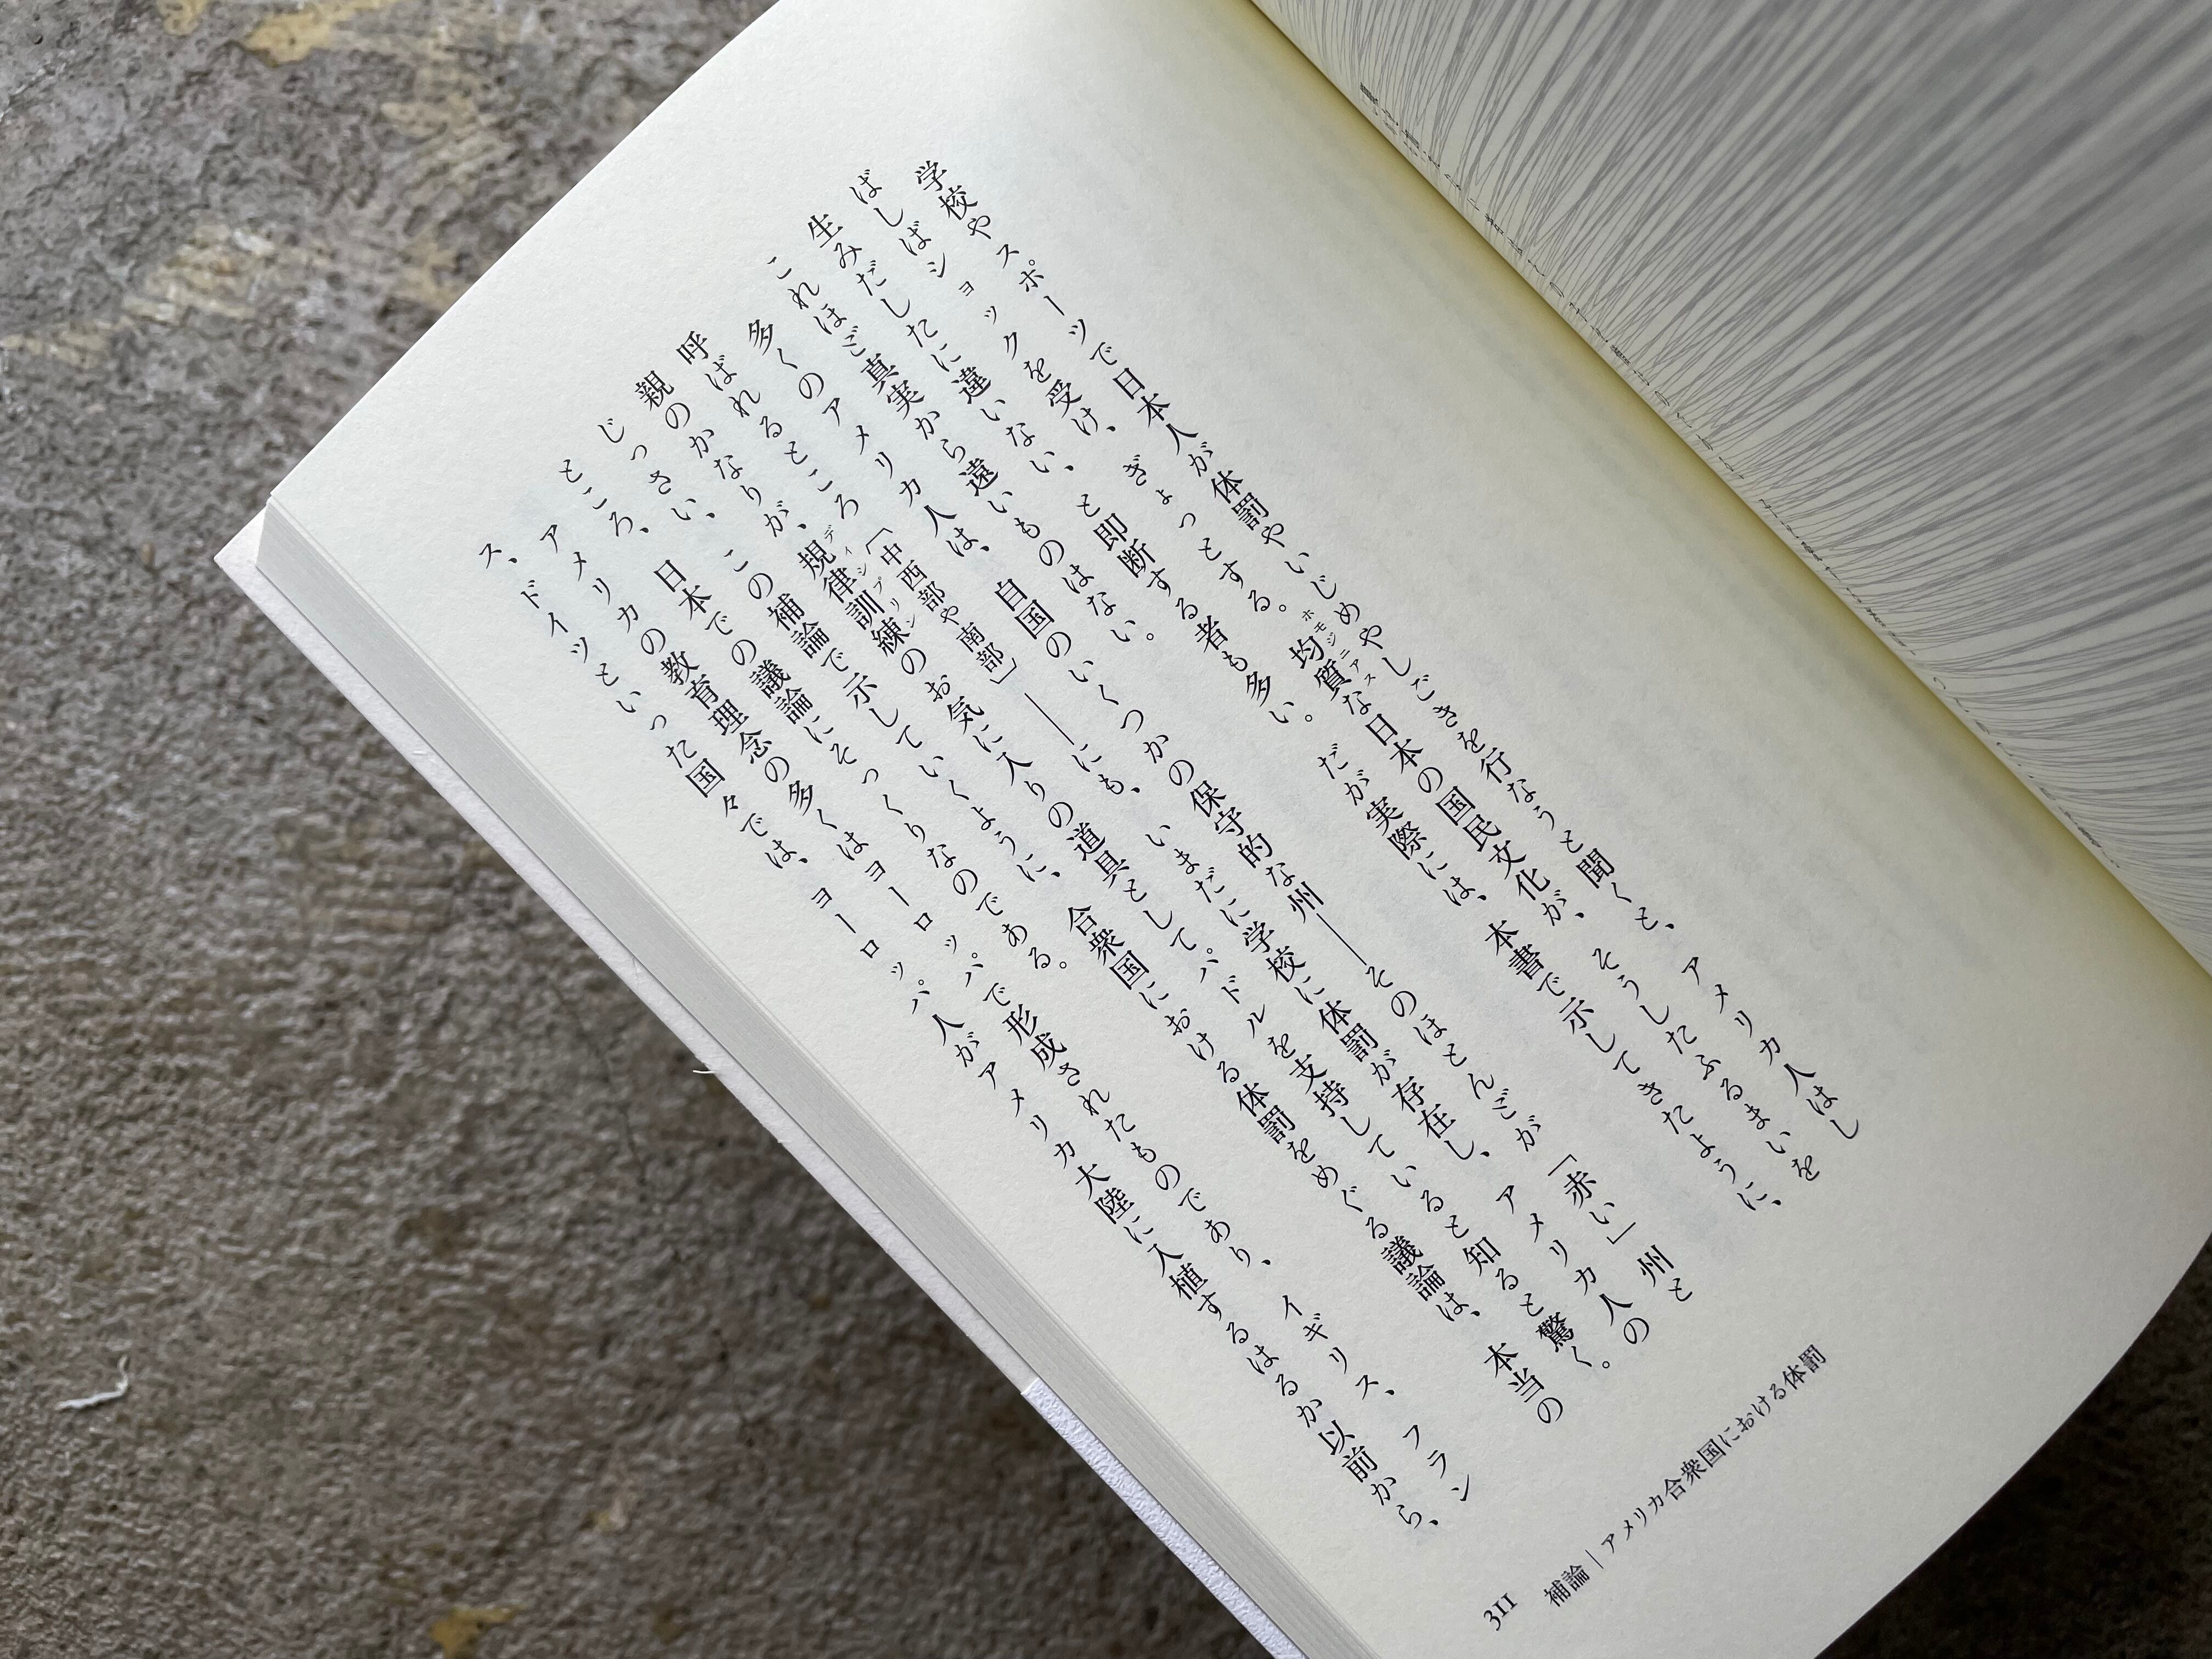 学校やスポーツで日本人が体罰やいじめやしごきを行なうと聞くと、アメリカ人はし
ばしばショックを受け、ぎょっとする。均質(ホモジニアス)な日本の国民文化が、そうしたふるまいを
生みだしたに違いない、と即断する者も多い。だが実際には、本書で示してきたように、
これほど真実から遠いものはない。
多くのアメリカ人は、自国のいくつかの保守的な州――そのほとんどが「赤い」州と
呼ばれるところ〔中西部や南部〕――にも、いまだに学校に体罰が存在し、アメリカ人の
親のかなりが、規律訓練(ディシプリン)のお気に入りの道具としてパドルを支持していると知ると驚く。
じっさい、この補論で示していくように、合衆国における体罰をめぐる議論は、本当の
ところ、日本での議論にそっくりなのである。
アメリカの教育理念の多くはヨーロッパで形成されたものであり、イギリス、フラン
ス、ドイツといった国々では、ヨーロッパ人がアメリカ大陸に入植するはるか以前から、
311 補論|アメリカ合衆国における体罰